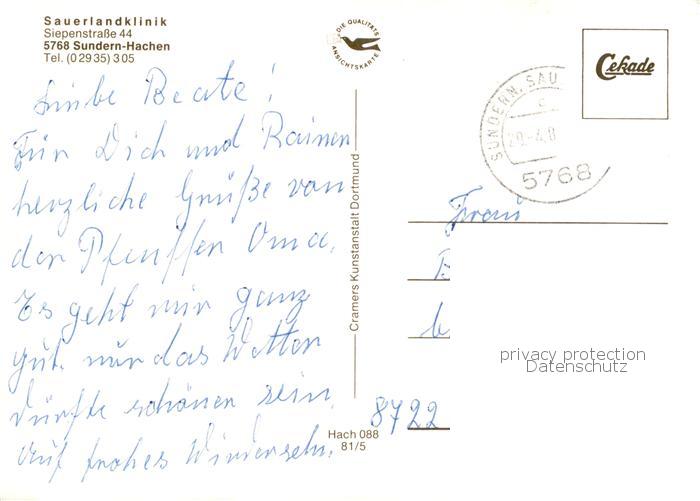 Sauerlandklinik
Siepenstraße 44
5768 Sundern-Hachen
Tel. (0 29 35) 3 05
DIE QUALITÄTS
ANSICHTSKARTE
Cekade
SUNDERN, SAU
c
20.-4.8
5768
Liebe Beate!
Für Dich und Rainer
herzliche Grüße von
der Pfeuffer Oma.
Es geht mir ganz
gut. nur das Wetter
dürfte schöner sein.
Auf frohes Wiedersehn.
Cramers Kunstanstalt Dortmund
Hach 088
81/5
Frau
B
b
8722
privacy protection
Datenschutz